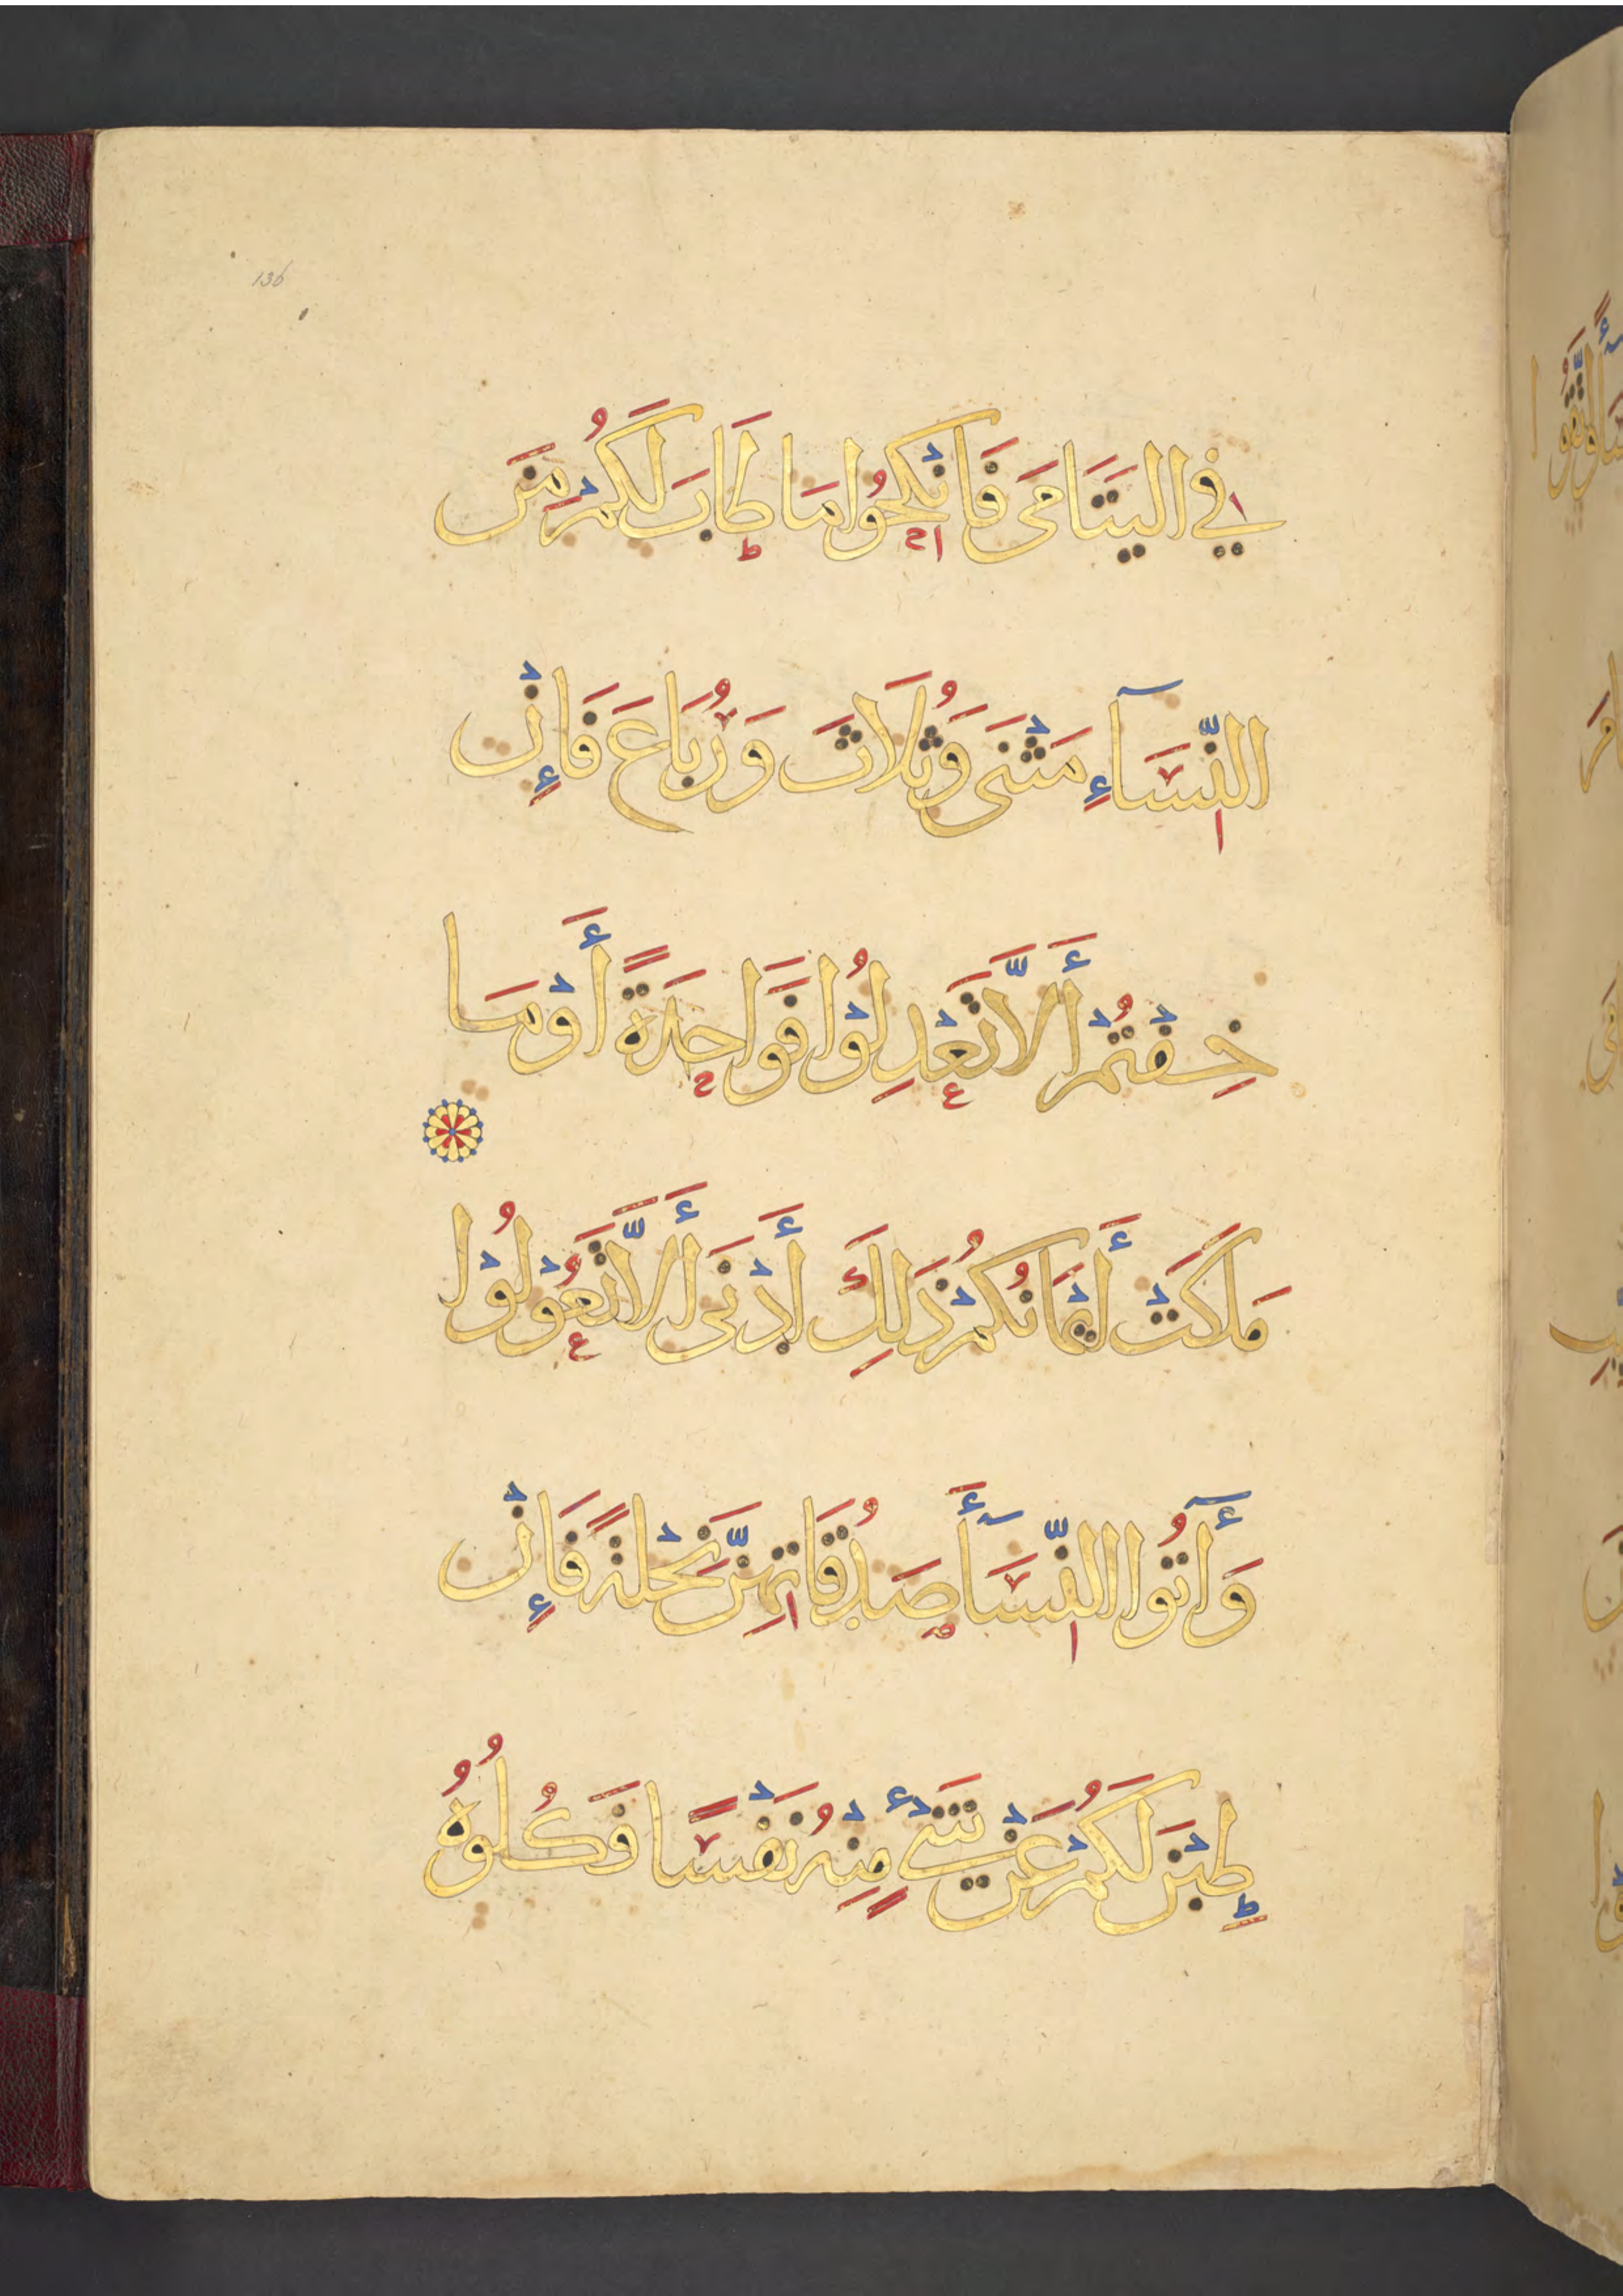 136
فِي الْيَتَامَى فَانْكِحُوا مَا طَابَ لَكُمْ مِنَ
النِّسَآءِ مَثْنَى وَثُلَاثَ وَرُبَاعَ فَإِنْ
خِفْتُمْ أَلَّا تَعْدِلُوْا فَوَاحِدَةً أَوْ مَا
مَلَكَتْ أَيْمَانُكُمْ ذَلِكَ أَدْنَى أَلَّا تَعُوْلُوْا
وَأَٓتُوا النِّسَآأَ صَدُقَاتِهِنَّ نِحْلَةً فَإِنْ
طِبْنَ لَكُمْ عَنْ شَيْءٍ مِنْهُ نَفْسًا فَكُلُوهُ